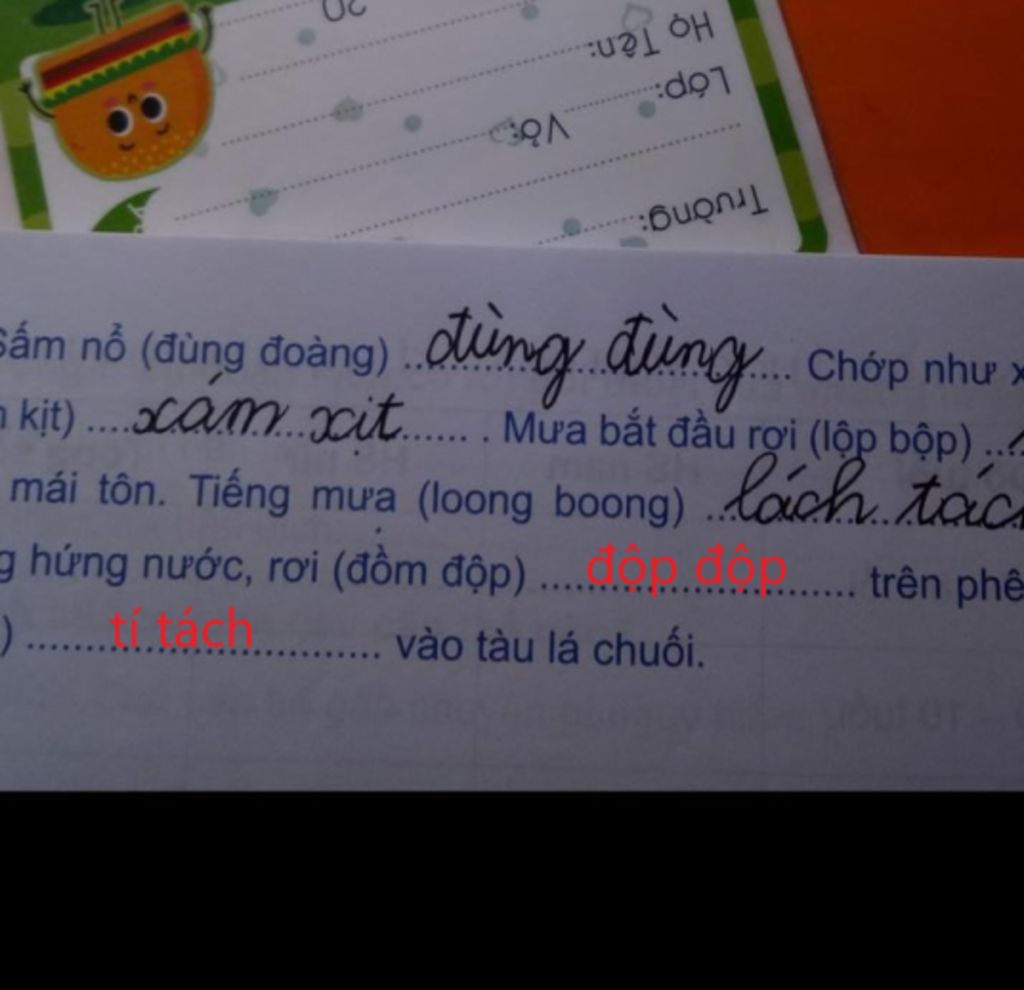 20
Họ Tên:
Lớp:
Vở:
Trường:
Sấm nổ (đùng đoàng) .. đùng đùng .... Chớp như x
kịt) .... xám xịt ...... . Mưa bắt đầu rơi (lộp bộp) ..
mái tôn. Tiếng mưa (loong boong) .. lách tác
g hứng nước, rơi (đồm độp) .... độp độp .... trên phê
) .... tí tách .... vào tàu lá chuối.